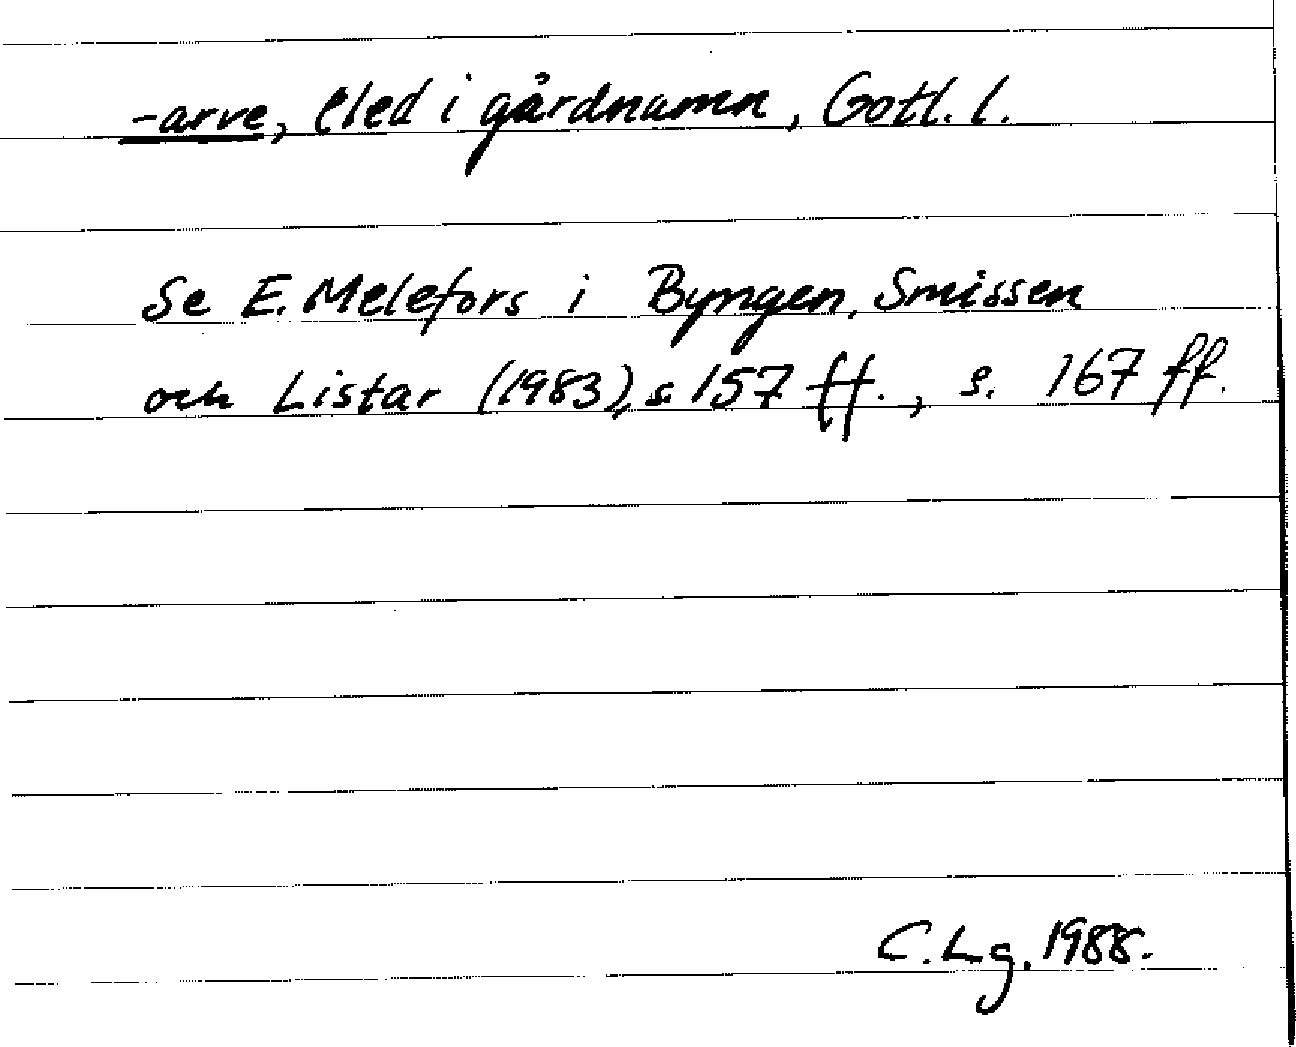 -arve, eled i gårdnamn, Gotl. l.
Se E. Melefors i Byngen, Smissen
och Listar (1983), s. 157 ff., s. 167 ff.
C. Lg. 1988.